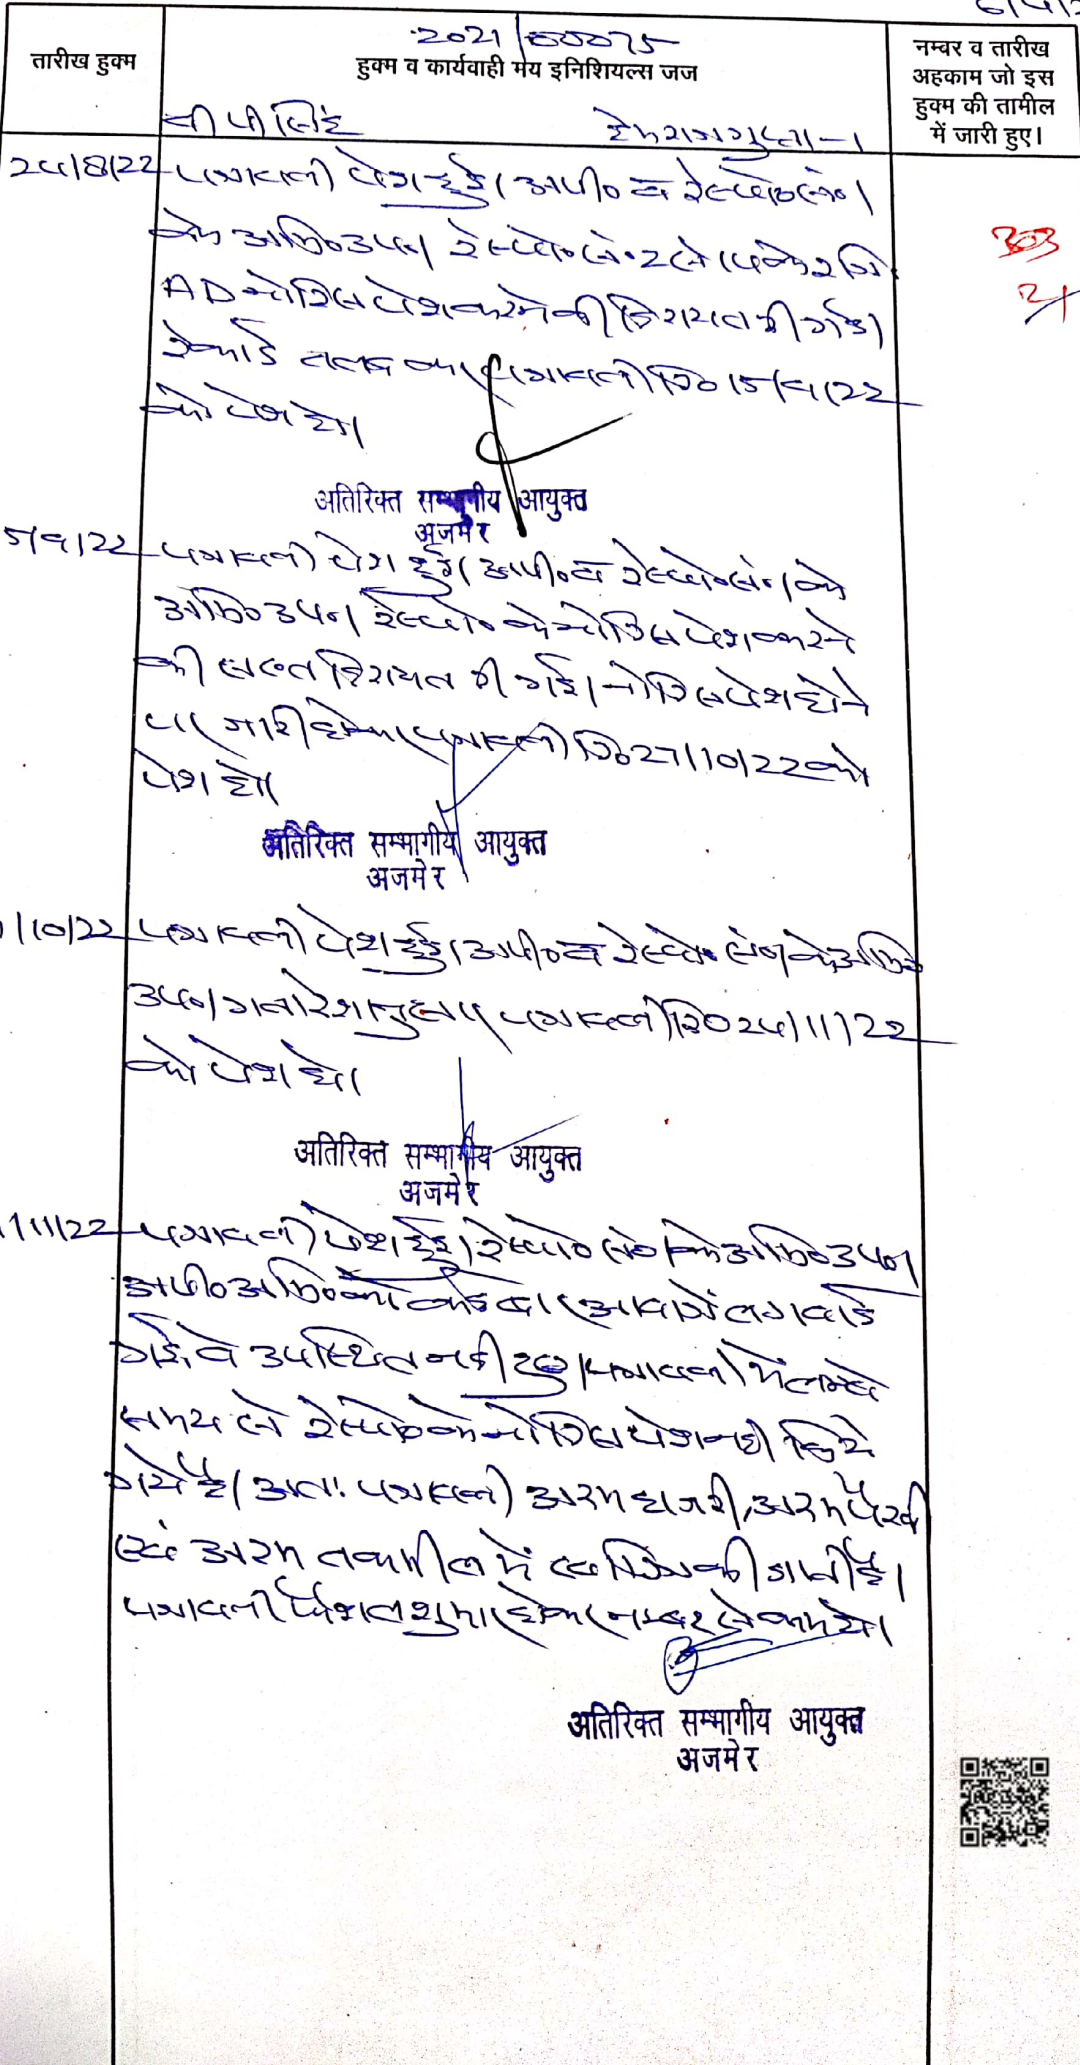 2021/00075
तारीख हुक्म
हुक्म व कार्यवाही मय इनिशियल्स जज
नम्बर व तारीख
अहकाम जो इस
हुक्म की तामील
में जारी हुए।
सी पी सिंह
हेमराज गुप्ता-1
24/8/22 पत्रावली पेश हुई। अपी० व रेस्पो० सं० 1
के अभि० उप०। रेस्पो० सं० 2 से के रजि०
AD नोटिस पेश करने की हिदायत दी गई।
रेकार्ड तलब पत्रावली दि० 15/9/22
को पेश हो।
303
21
अतिरिक्त सम्भागीय आयुक्त
अजमेर
5/9/22 पत्रावली पेश हुई। अपी० व रेस्पो० सं० 1 के
अभि० उप०। रेस्पो० के नोटिस पेश करने
की सख्त हिदायत दी गई। नोटिस पेश होने
पर जारी होकर पत्रावली दि० 27/10/22 को
पेश हो।
अतिरिक्त सम्भागीय आयुक्त
अजमेर
/10/22 पत्रावली पेश हुई। अपी० व रेस्पो० सं० 1 के अभि०
उप०। गत आदेशानुसार पत्रावली दि० 24/11/22
को पेश हो।
अतिरिक्त सम्भागीय आयुक्त
अजमेर
/11/22 पत्रावली पेश हुई। रेस्पो० सं० 1 के अभि० उप०।
अपी० अभि० को कई बार आवाजें लगवाई
गई, वे उपस्थित नही हुए। पत्रावली में लम्बे
समय से रेस्पो० के नोटिस पेश नही किये
गये है। अतः पत्रावली अदम हाजरी, अदम पैरवी
एवं अदम तकमील में खारिज की जाती है।
पत्रावली फैसल शुमार होकर नम्बर से कम हो।
अतिरिक्त सम्भागीय आयुक्त
अजमेर